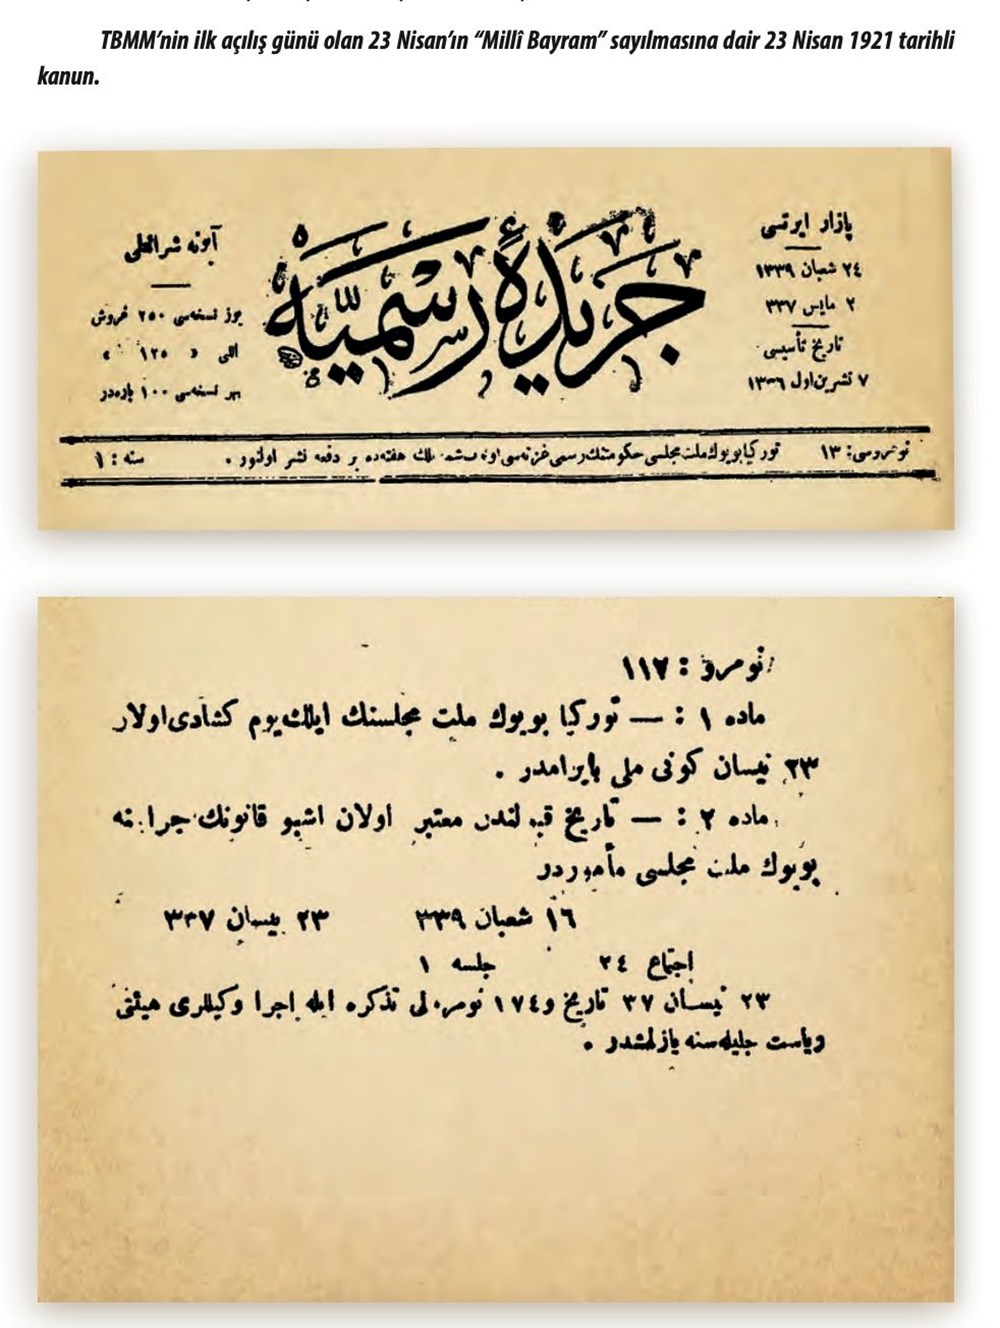 TBMM’nin ilk açılış günü olan 23 Nisan’ın “Millî Bayram” sayılmasına dair 23 Nisan 1921 tarihli
kanun.
پازار ایرتسی
٢٤ شعبان ١٣٣٩
٢ مایس ٣٣٧
تاریخ تأسیسی
٧ تشرین اول ١٣٣٦
جریدۀ رسمیه
آبونه شرائطی
یوز نسخه‌سی ٢٥٠ غروش
اللی « ١٢٥ »
هر نسخه‌سی ١٠٠ پاره‌در
نومروسی: ١٣
تورکیا بویوك ملت مجلسی حکومتنك رسمی غزته‌سی هفته‌ده بر دفعه نشر اولنور .
سنه : ١
نومرو : ١١٧
ماده ١ : — تورکیا بویوك ملت مجلسنك ایلك یوم کشادی اولان
٢٣ نیسان کونی ملی بایرامدر .
ماده ٢ : — تاریخ قبولندن معتبر اولان اشبو قانونك اجراسنه
بویوك ملت مجلسی مأموردر
١٦ شعبان ٣٣٩ ٢٣ نیسان ٣٣٧
اجتماع ٢٤ جلسه ١
٢٣ نیسان ٣٧ تاریخ و ١٧٤ نومرولی تذکره ایله اجرا وکیللری هیئتی
ریاست جلیله‌سنه یازلمشدر .